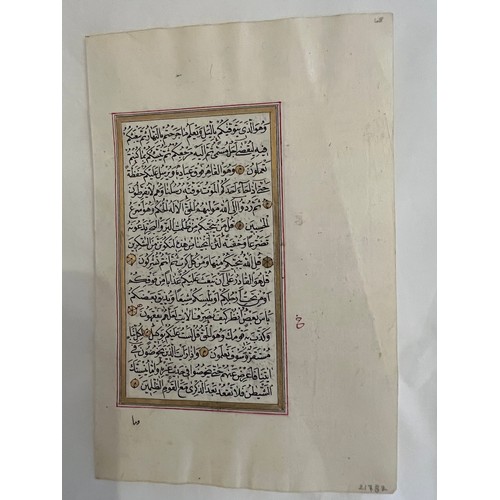 وَهُوَ الَّذِي يَتَوَفّٰيكُمْ بِالَّيْلِ وَيَعْلَمُ مَا جَرَحْتُمْ بِالنَّهَارِ ثُمَّ يَبْعَثُكُمْ
فِيهِ لِيُقْضٰى اَجَلٌ مُسَمًّى ثُمَّ اِلَيْهِ مَرْجِعُكُمْ ثُمَّ يُنَبِّئُكُمْ بِمَا كُنْتُمْ
تَعْمَلُونَ وَهُوَ الْقَاهِرُ فَوْقَ عِبَادِهِ وَيُرْسِلُ عَلَيْكُمْ حَفَظَةً
حَتّٰى اِذَا جَاءَ اَحَدَكُمُ الْمَوْتُ تَوَفَّتْهُ رُسُلُنَا وَهُمْ لَا يُفَرِّطُونَ
ثُمَّ رُدُّوا اِلَى اللّٰهِ مَوْلٰيهُمُ الْحَقِّ اَلَا لَهُ الْحُكْمُ وَهُوَ اَسْرَعُ
الْحَاسِبِينَ قُلْ مَنْ يُنَجِّيكُمْ مِنْ ظُلُمَاتِ الْبَرِّ وَالْبَحْرِ تَدْعُونَهُ
تَضَرُّعًا وَخُفْيَةً لَئِنْ اَنْجٰينَا مِنْ هٰذِهِ لَنَكُونَنَّ مِنَ الشَّاكِرِينَ
قُلِ اللّٰهُ يُنَجِّيكُمْ مِنْهَا وَمِنْ كُلِّ كَرْبٍ ثُمَّ اَنْتُمْ تُشْرِكُونَ
قُلْ هُوَ الْقَادِرُ عَلٰى اَنْ يَبْعَثَ عَلَيْكُمْ عَذَابًا مِنْ فَوْقِكُمْ
اَوْ مِنْ تَحْتِ اَرْجُلِكُمْ اَوْ يَلْبِسَكُمْ شِيَعًا وَيُذِيقَ بَعْضَكُمْ
بَاْسَ بَعْضٍ اُنْظُرْ كَيْفَ نُصَرِّفُ الْاٰيَاتِ لَعَلَّهُمْ يَفْقَهُونَ
وَكَذَّبَ بِهِ قَوْمُكَ وَهُوَ الْحَقُّ قُلْ لَسْتُ عَلَيْكُمْ بِوَكِيلٍ لِكُلِّ نَبَاٍ
مُسْتَقَرٌّ وَسَوْفَ تَعْلَمُونَ وَاِذَا رَاَيْتَ الَّذِينَ يَخُوضُونَ فِي
اٰيَاتِنَا فَاَعْرِضْ عَنْهُمْ حَتّٰى يَخُوضُوا فِي حَدِيثٍ غَيْرِهِ وَاِمَّا يُنْسِيَنَّكَ
الشَّيْطَانُ فَلَا تَقْعُدْ بَعْدَ الذِّكْرٰى مَعَ الْقَوْمِ الظَّالِمِينَ
وما
21782